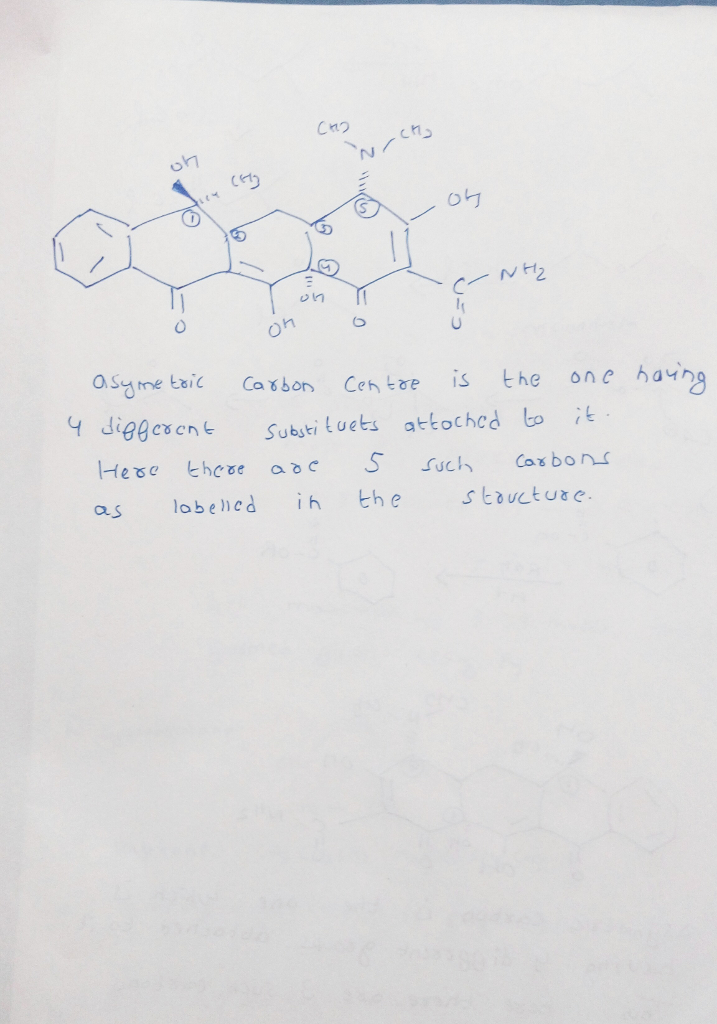 CH3 CH3
N
OH CH3
① ② ③ 5 OH
④ C NH2
OH
O OH O O
asymetric carbon centre is the one having
4 different substituets attached to it.
Here there are 5 such carbons
as labelled in the structure.